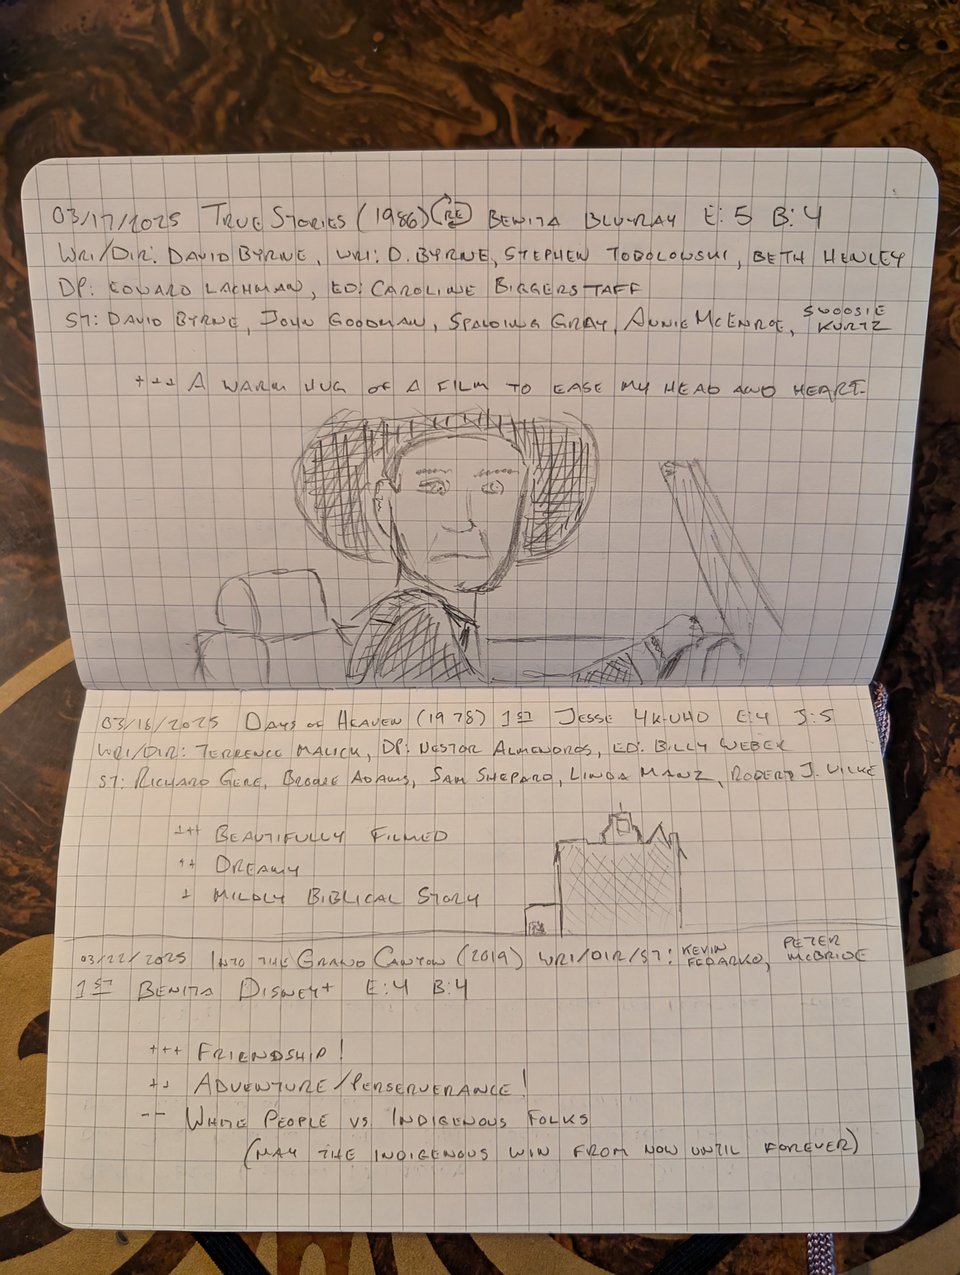 03/17/2025 TRUE STORIES (1986) RE BENITA BLU-RAY E: 5 B: 4
WRI/DIR: DAVID BYRNE, WRI: D. BYRNE, STEPHEN TOBOLOWSKI, BETH HENLEY
DP: EDWARD LACHMAN, ED: CAROLINE BIGGERSTAFF
ST: DAVID BYRNE, JOHN GOODMAN, SPALDING GRAY, ANNIE MCENROE, SWOOSIE KURTZ
+++ A WARM HUG OF A FILM TO EASE MY HEAD AND HEART.
03/16/2025 DAYS OF HEAVEN (1978) 1ST JESSE 4K-UHD E:4 J:5
WRI/DIR: TERRENCE MALICK, DP: NESTOR ALMENDROS, ED: BILLY WEBER
ST: RICHARD GERE, BROOKE ADAMS, SAM SHEPARD, LINDA MANZ, ROBERT J. WILKE
+++ BEAUTIFULLY FILMED
++ DREAMY
+ MILDLY BIBLICAL STORY
03/22/2025 INTO THE GRAND CANYON (2019) WRI/DIR/ST: KEVIN FEDARKO, PETER MCBRIDE
1ST BENITA DISNEY+ E:4 B:4
+++ FRIENDSHIP!
++ ADVENTURE/PERSERVERANCE!
-- WHITE PEOPLE VS INDIGENOUS FOLKS
(MAY THE INDIGENOUS WIN FROM NOW UNTIL FOREVER)